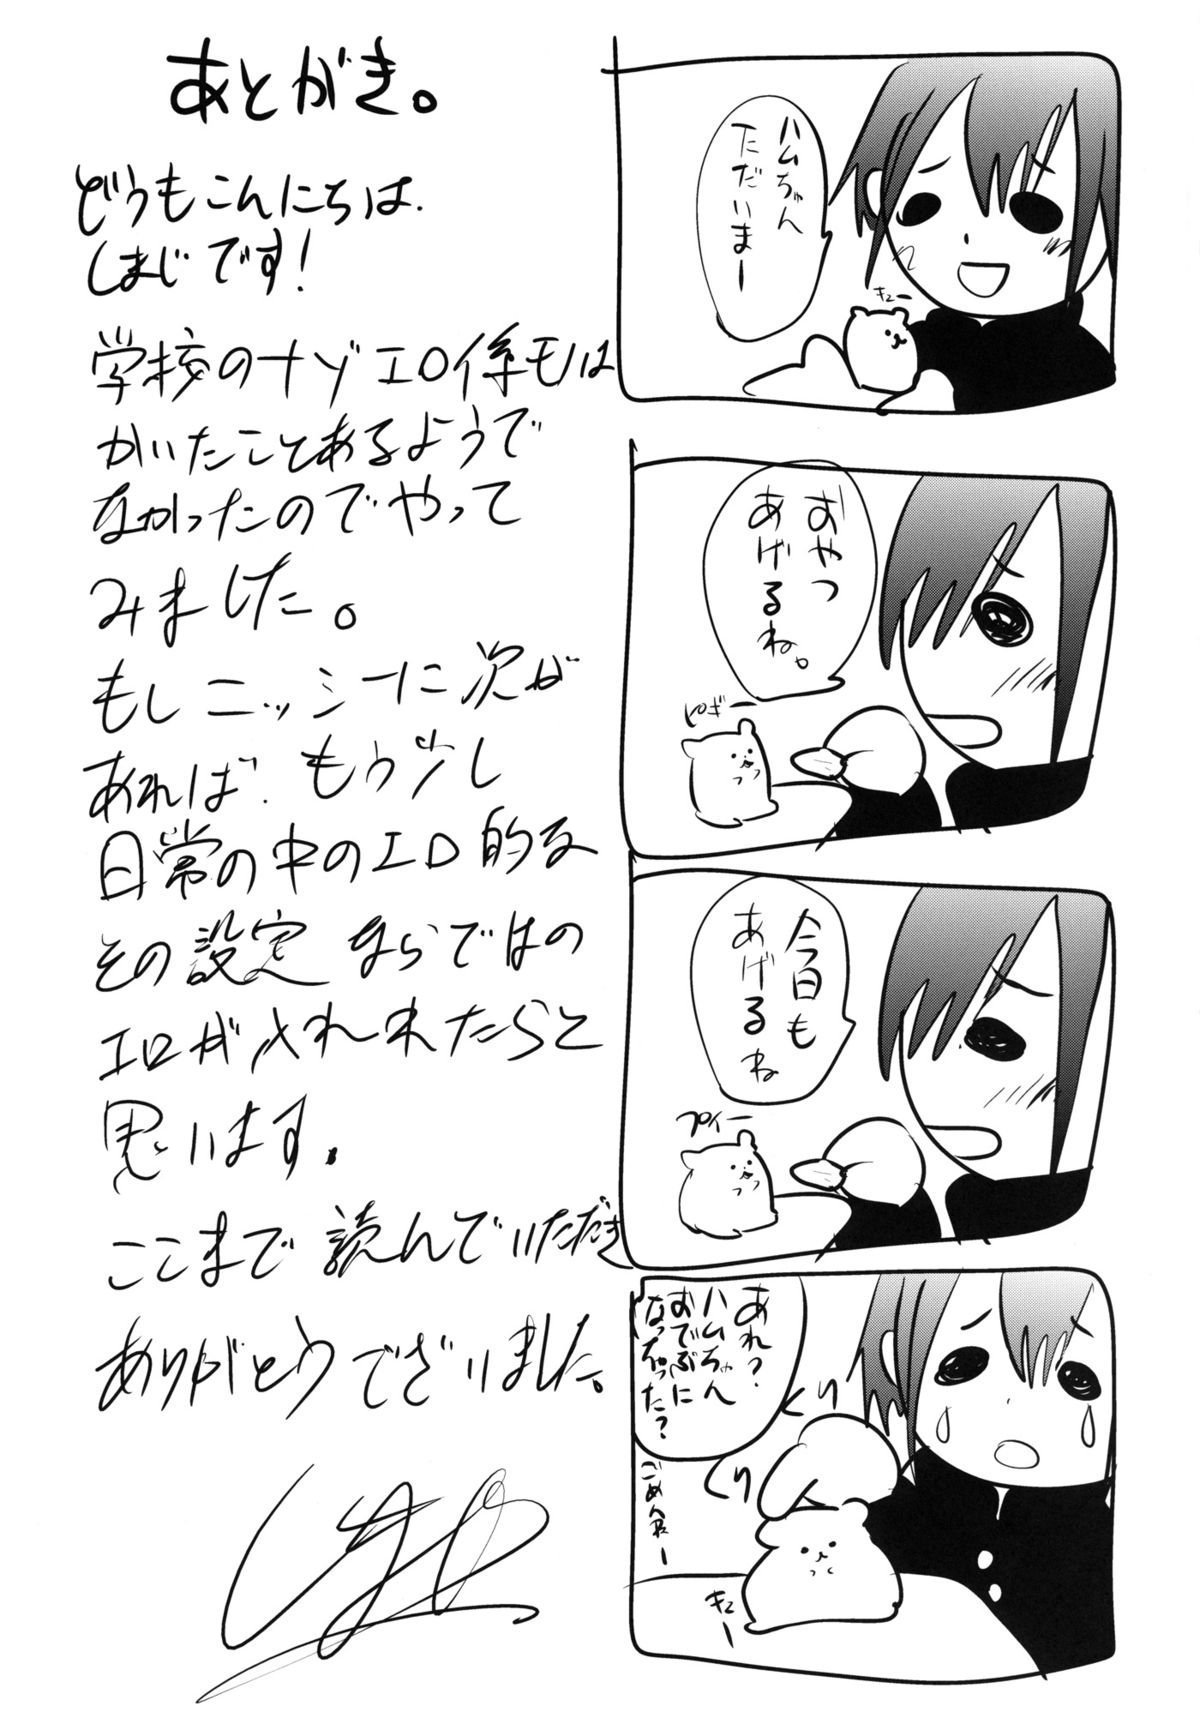 あとがき。
どうもこんにちは.
しまじです!
学校のナゾエロ係モノは
かいたことあるようで
なかったのでやって
みました。
もしニッシーに次が
あれば.もう少し
日常の中のエロ的な
その設定ならではの
エロが入れれたらと
思います.
ここまで読んでいただき
ありがとうございました。
ハムちゃん
ただいまー
キュー
おやつ
あげるね。
ピギー
今日も
あげるね
プイー
あれ?
ハムちゃん
おでぶに
なっちゃった?
くり
くり
ごめんねー
キュー